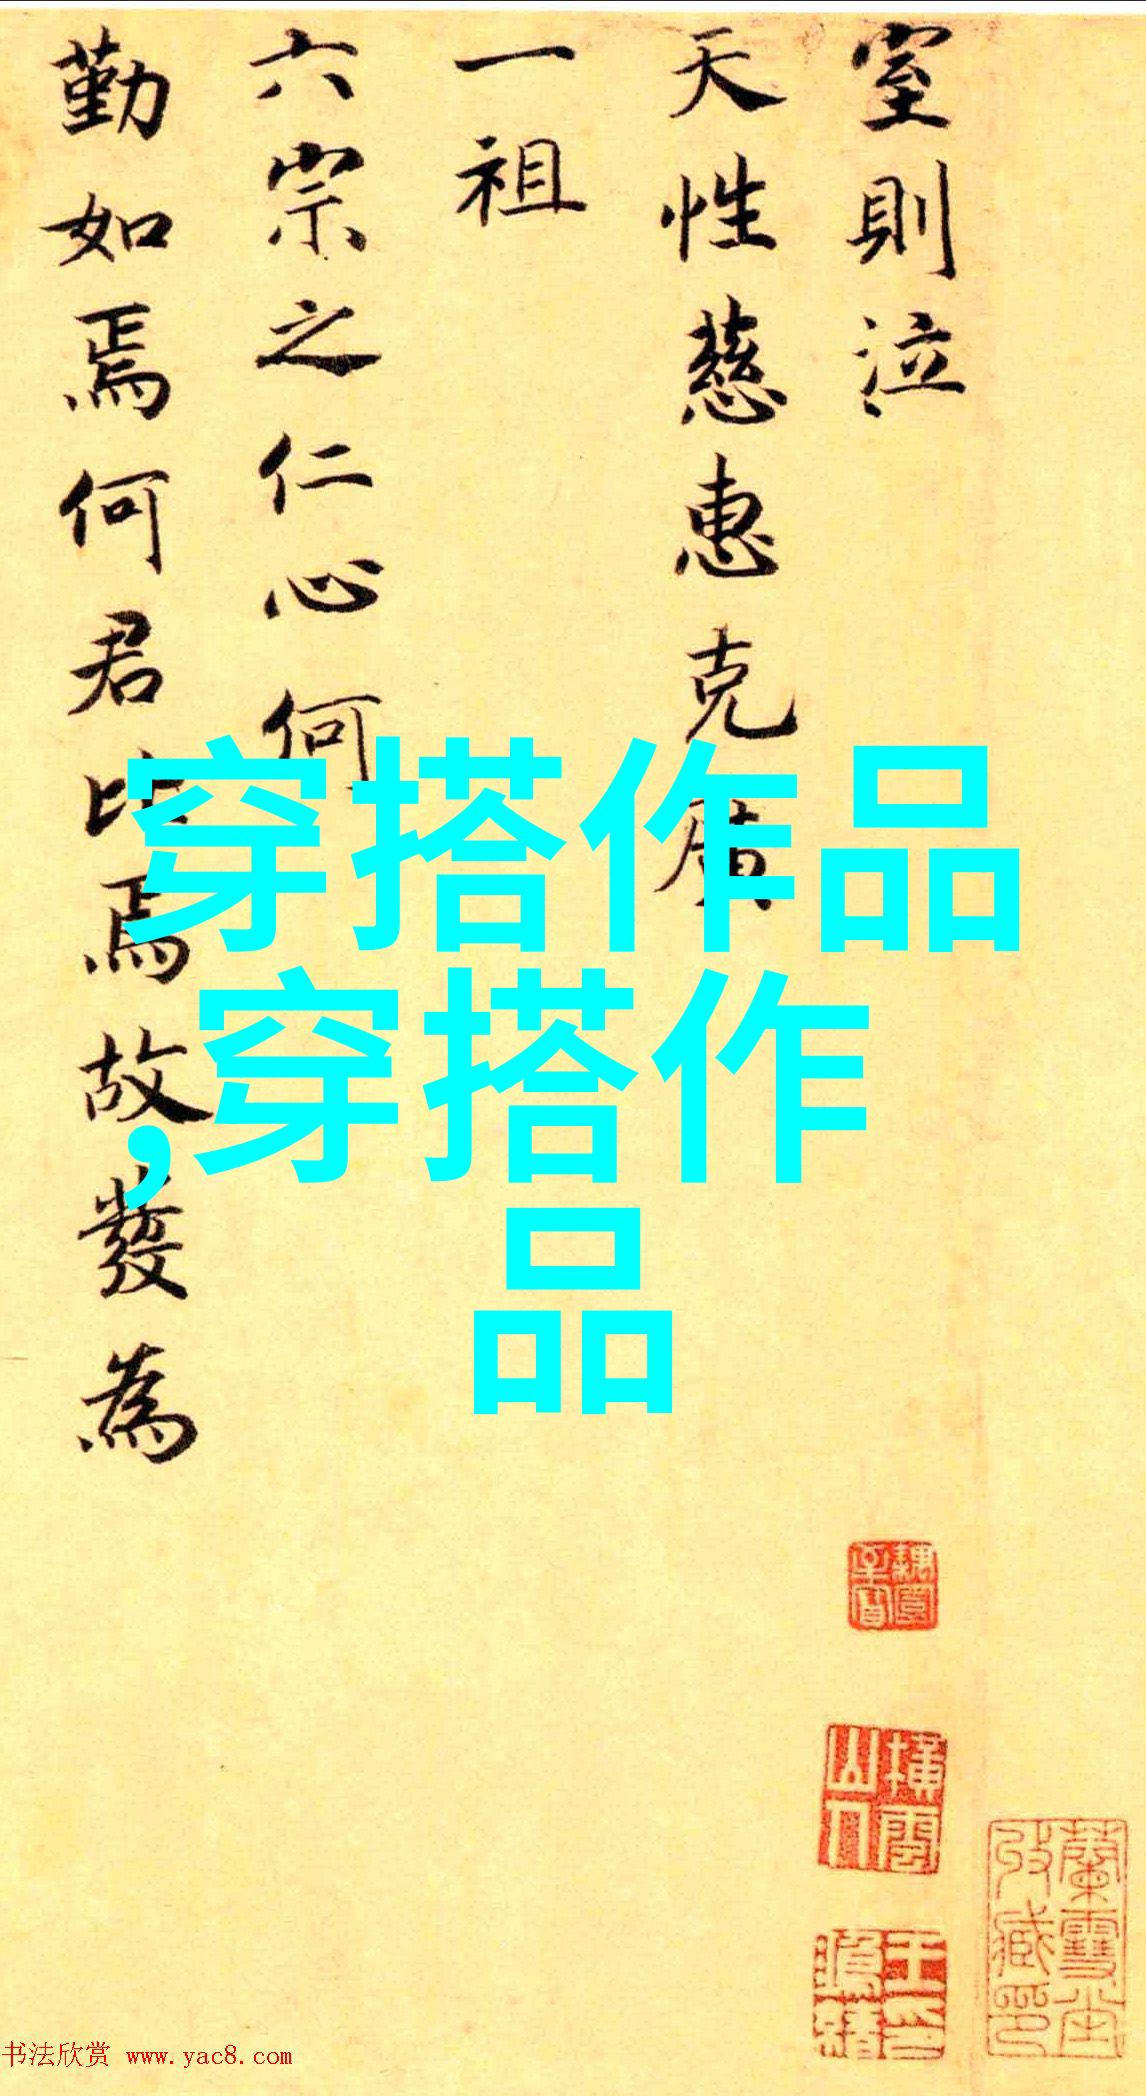 室則泣
天性慈惠克廣
一祖
六宗之仁心何
勤如焉何君比焉故發為
穿搭作品
,穿搭作
品
書法欣赏 www.yac8.com